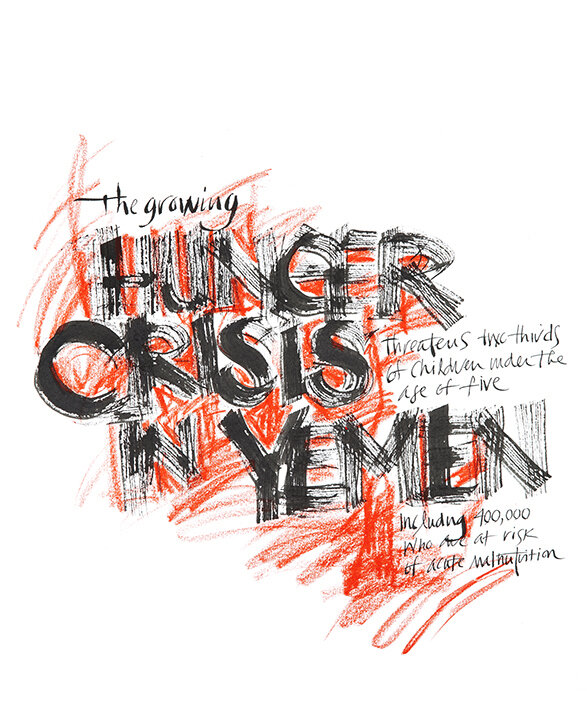 the growing
HUNGER
CRISIS
threatens two thirds
of children under the
age of five
IN YEMEN
Including 400,000
who are at risk
of acute malnutrition